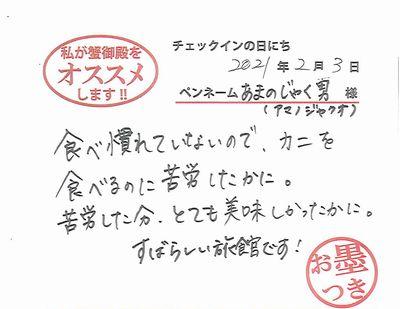 私が蟹御殿を
オススメ
します!!
チェックインの日にち
2021年2月3日
ペンネーム あまのじゃく男 様
(アマノジャクオ)
食べ慣れていないので、カニを
食べるのに苦労したかに。
苦労した分、とても美味しかったかに。
すばらしい旅館です!
お墨
つき